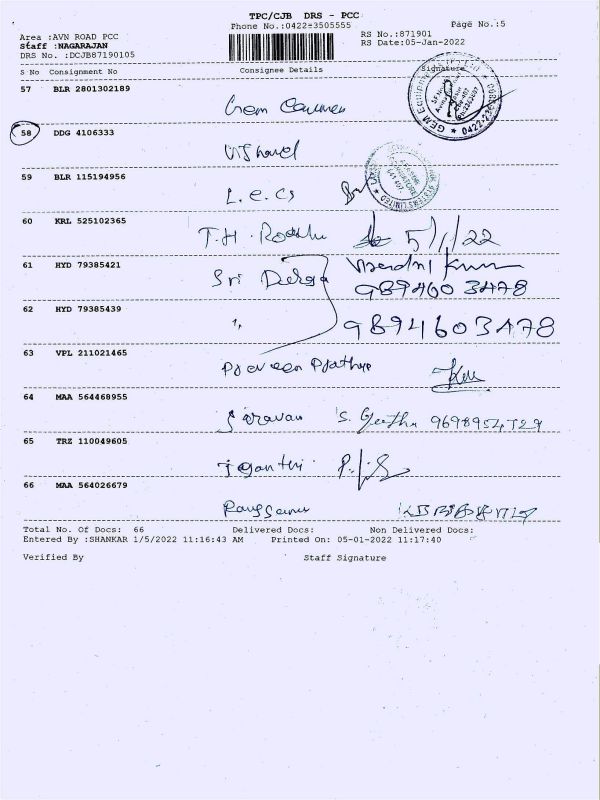 TPC/CJB DRS - PCC
Phone No.:0422±3505555
Page No.:5
Area :AVN ROAD PCC
RS No.:871901
Staff :NAGARAJAN
RS Date:05-Jan-2022
DRS No. :DCJB87190105
S No Consignment No Consignee Details Signature
57 BLR 2801302189
Gem
58 DDG 4106333
59 BLR 115194956
L.e.cs
60 KRL 525102365
T.H. 5/1/22
61 HYD 79385421
Sri Durga
9894603478
62 HYD 79385439
",
9894603478
63 VPL 211021465
Praveen
64 MAA 564468955
Saravan S. Geetha
65 TRZ 110049605
66 MAA 564026679
Total No. Of Docs: 66 Delivered Docs: Non Delivered Docs:
Entered By :SHANKAR 1/5/2022 11:16:43 AM Printed On: 05-01-2022 11:17:40
Verified By Staff Signature